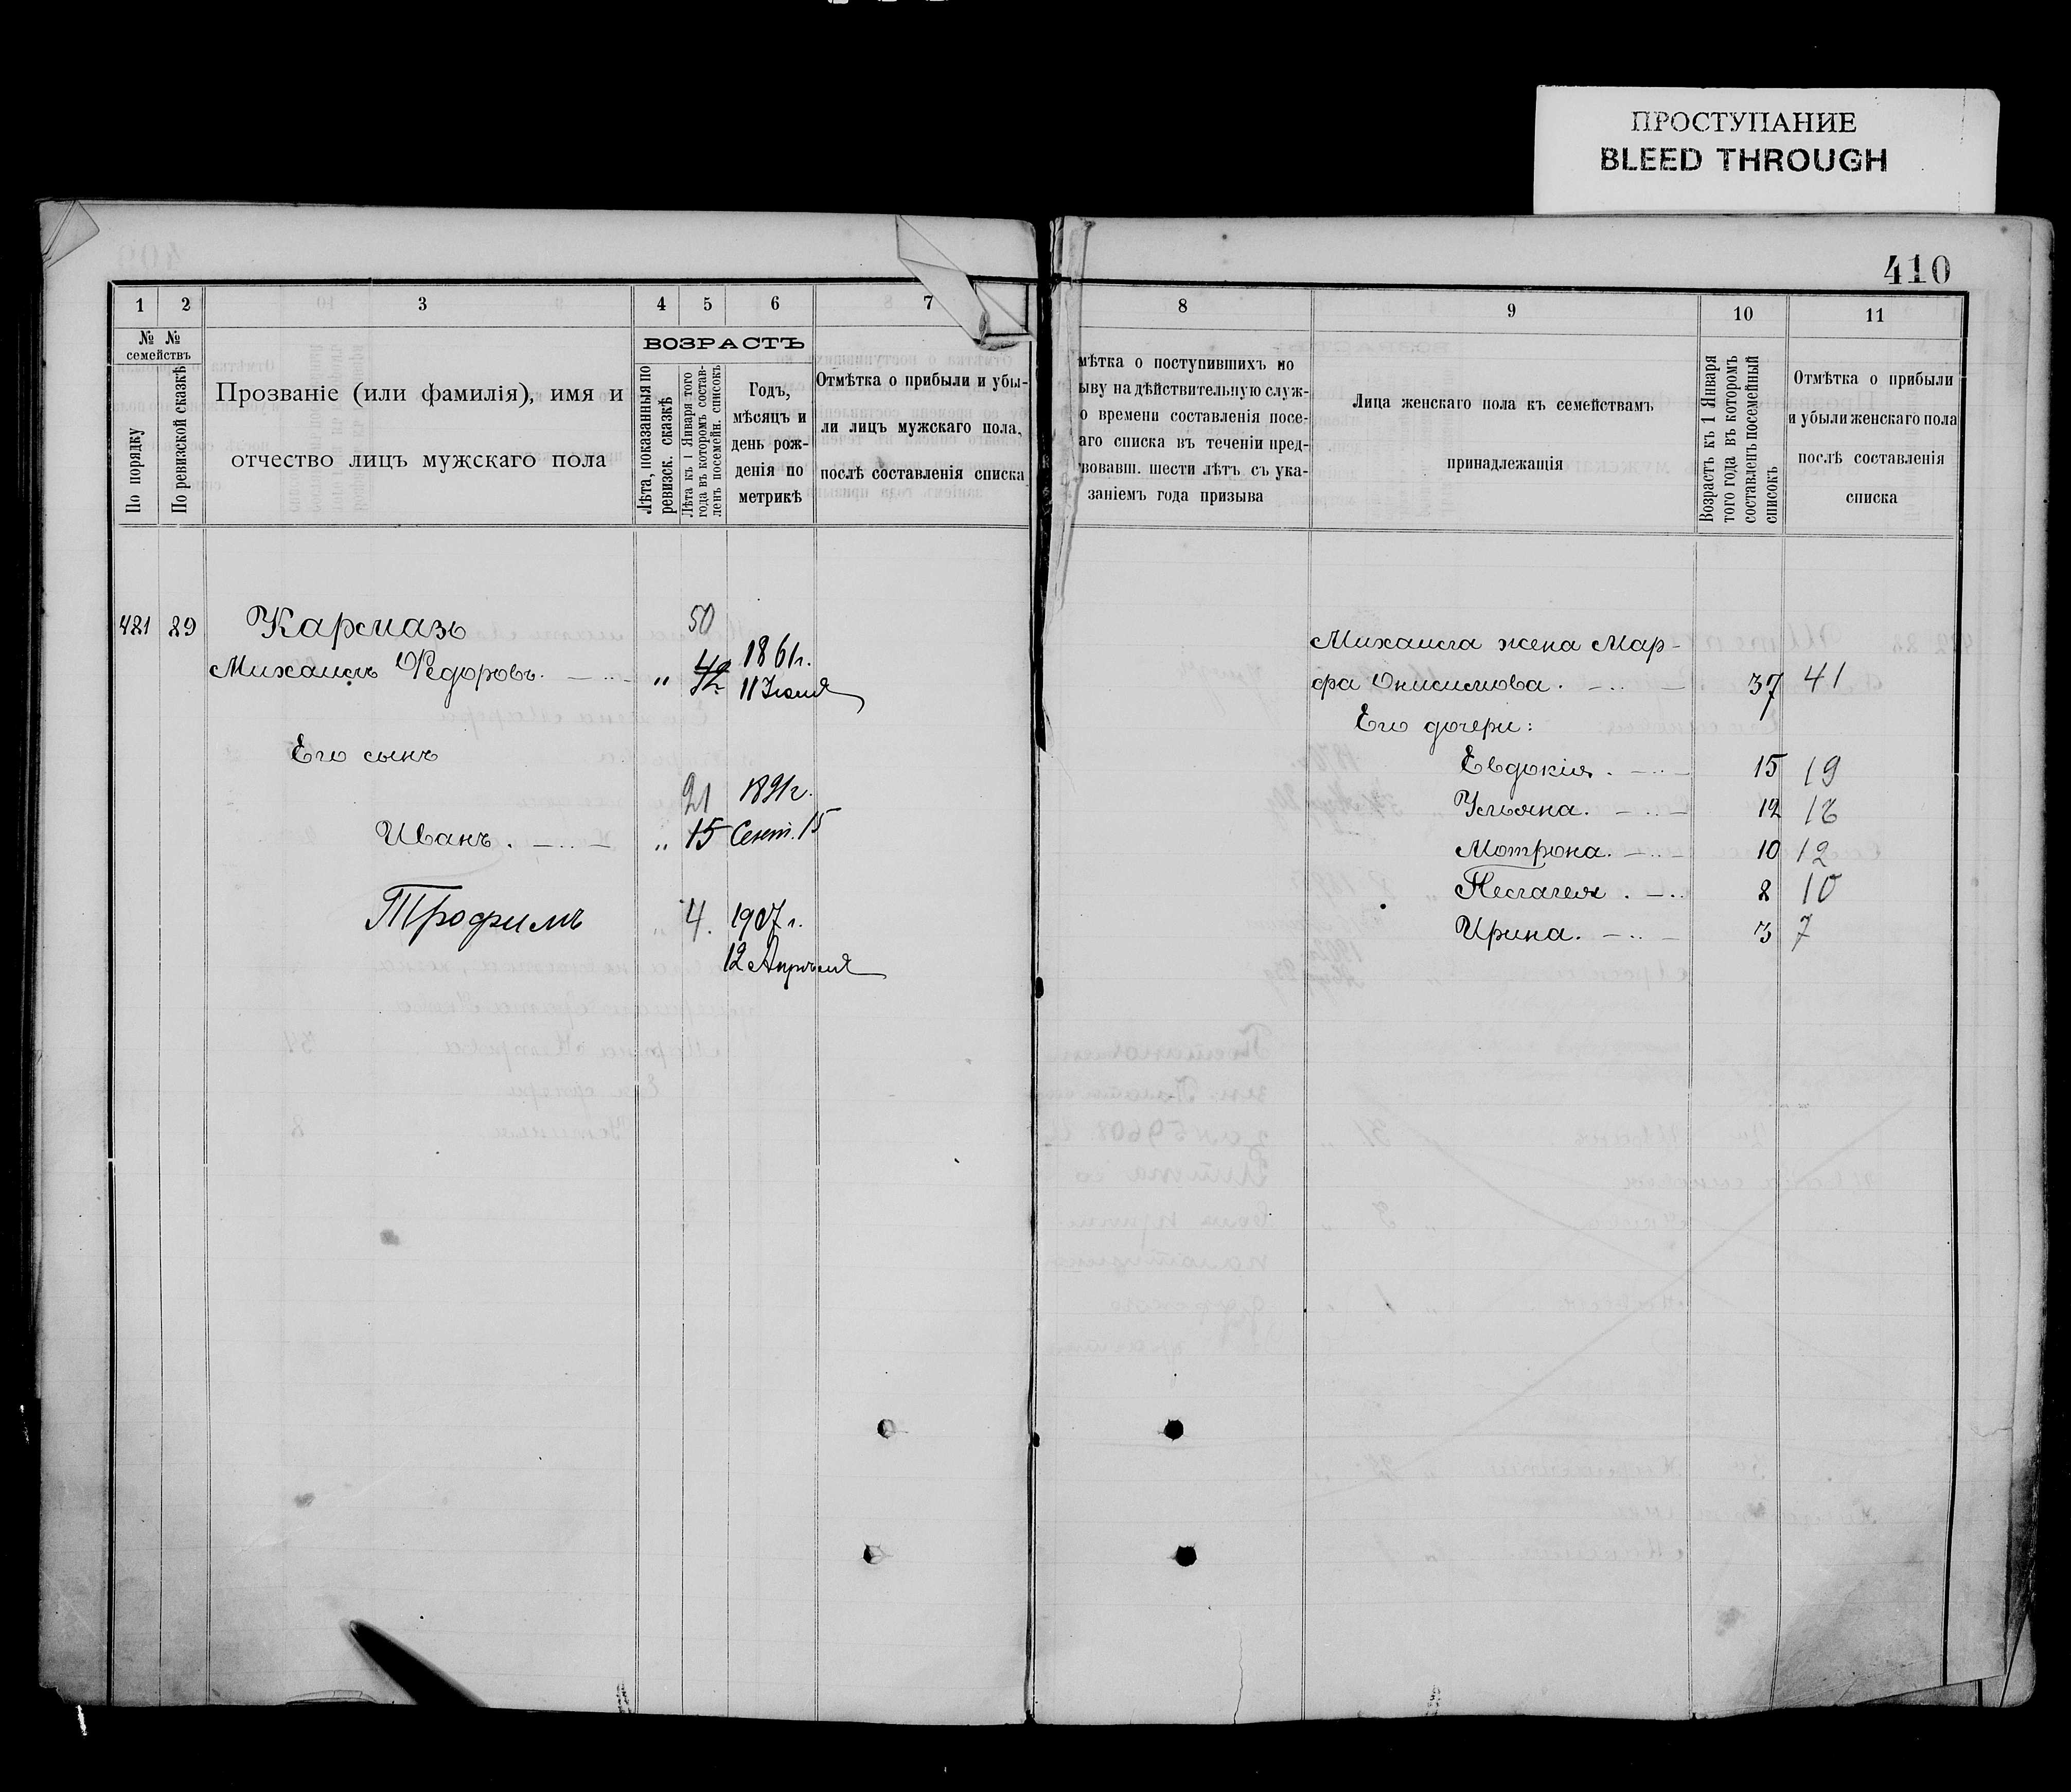 ПРОСТУПАНИЕ
BLEED THROUGH
410
1 2 3 4 5 6 7
№ №
семействъ
По порядку
По ревизской сказкѣ
Прозваніе (или фамилія), имя и
отчество лицъ мужскаго пола
ВОЗРАСТЪ
Лѣта, показанныя по
ревизск. сказкѣ
Лѣта къ 1 Января того
года въ которомъ состав-
ленъ посемейн. списокъ
Годъ,
мѣсяцъ и
день рож-
денія по
метрикѣ
Отмѣтка о прибыли и убы-
ли лицъ мужскаго пола,
послѣ составленія списка
421 29 Кармазь 50
Михаилъ Ѳедоровъ. „ 42 1861г.
11 Іюля
Его сынъ
21 1891г.
Иванъ. „ 15 Сент. 15
Трофимъ „ 4. 1907 г.
12 Апрѣля
8 9 10 11
мѣтка о поступившихъ по
ыву на дѣйствительную служ-
о времени составленія посе-
аго списка въ теченіи пред-
вовавш. шести лѣтъ съ ука-
заніемъ года призыва
Лица женскаго пола къ семействамъ
принадлежащія
Возрастъ къ 1 Января
того года въ которомъ
составленъ посемейный
списокъ
Отмѣтка о прибыли
и убыли женскаго пола
послѣ составленія
списка
Михаила жена Мар-
фа Онисимова. 37 41
Его дочери:
Евдокія. 15 19
Ульяна. 12 16
Мотрона. 10 12
Пелагея. 8 10
Ирина. 3 7